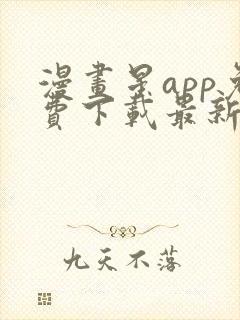 漫畫星app免
費下載最新
九天不落